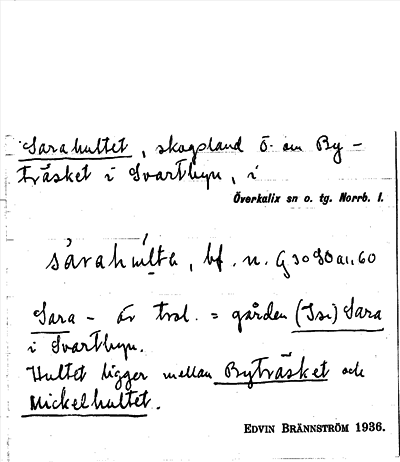 Sarahultet, skogsland ö. om By-
träsket i Svartbyn, i
Överkalix sn o. tg. Norrb. l.
sárahúlta, bf. n. G 3080 a11,60
Sara- är trol. = gården (Isi) Sara
i Svartbyn.
Hultet ligger mellan Byträsket och
Mickelhultet.
EDVIN BRÄNNSTRÖM 1936.